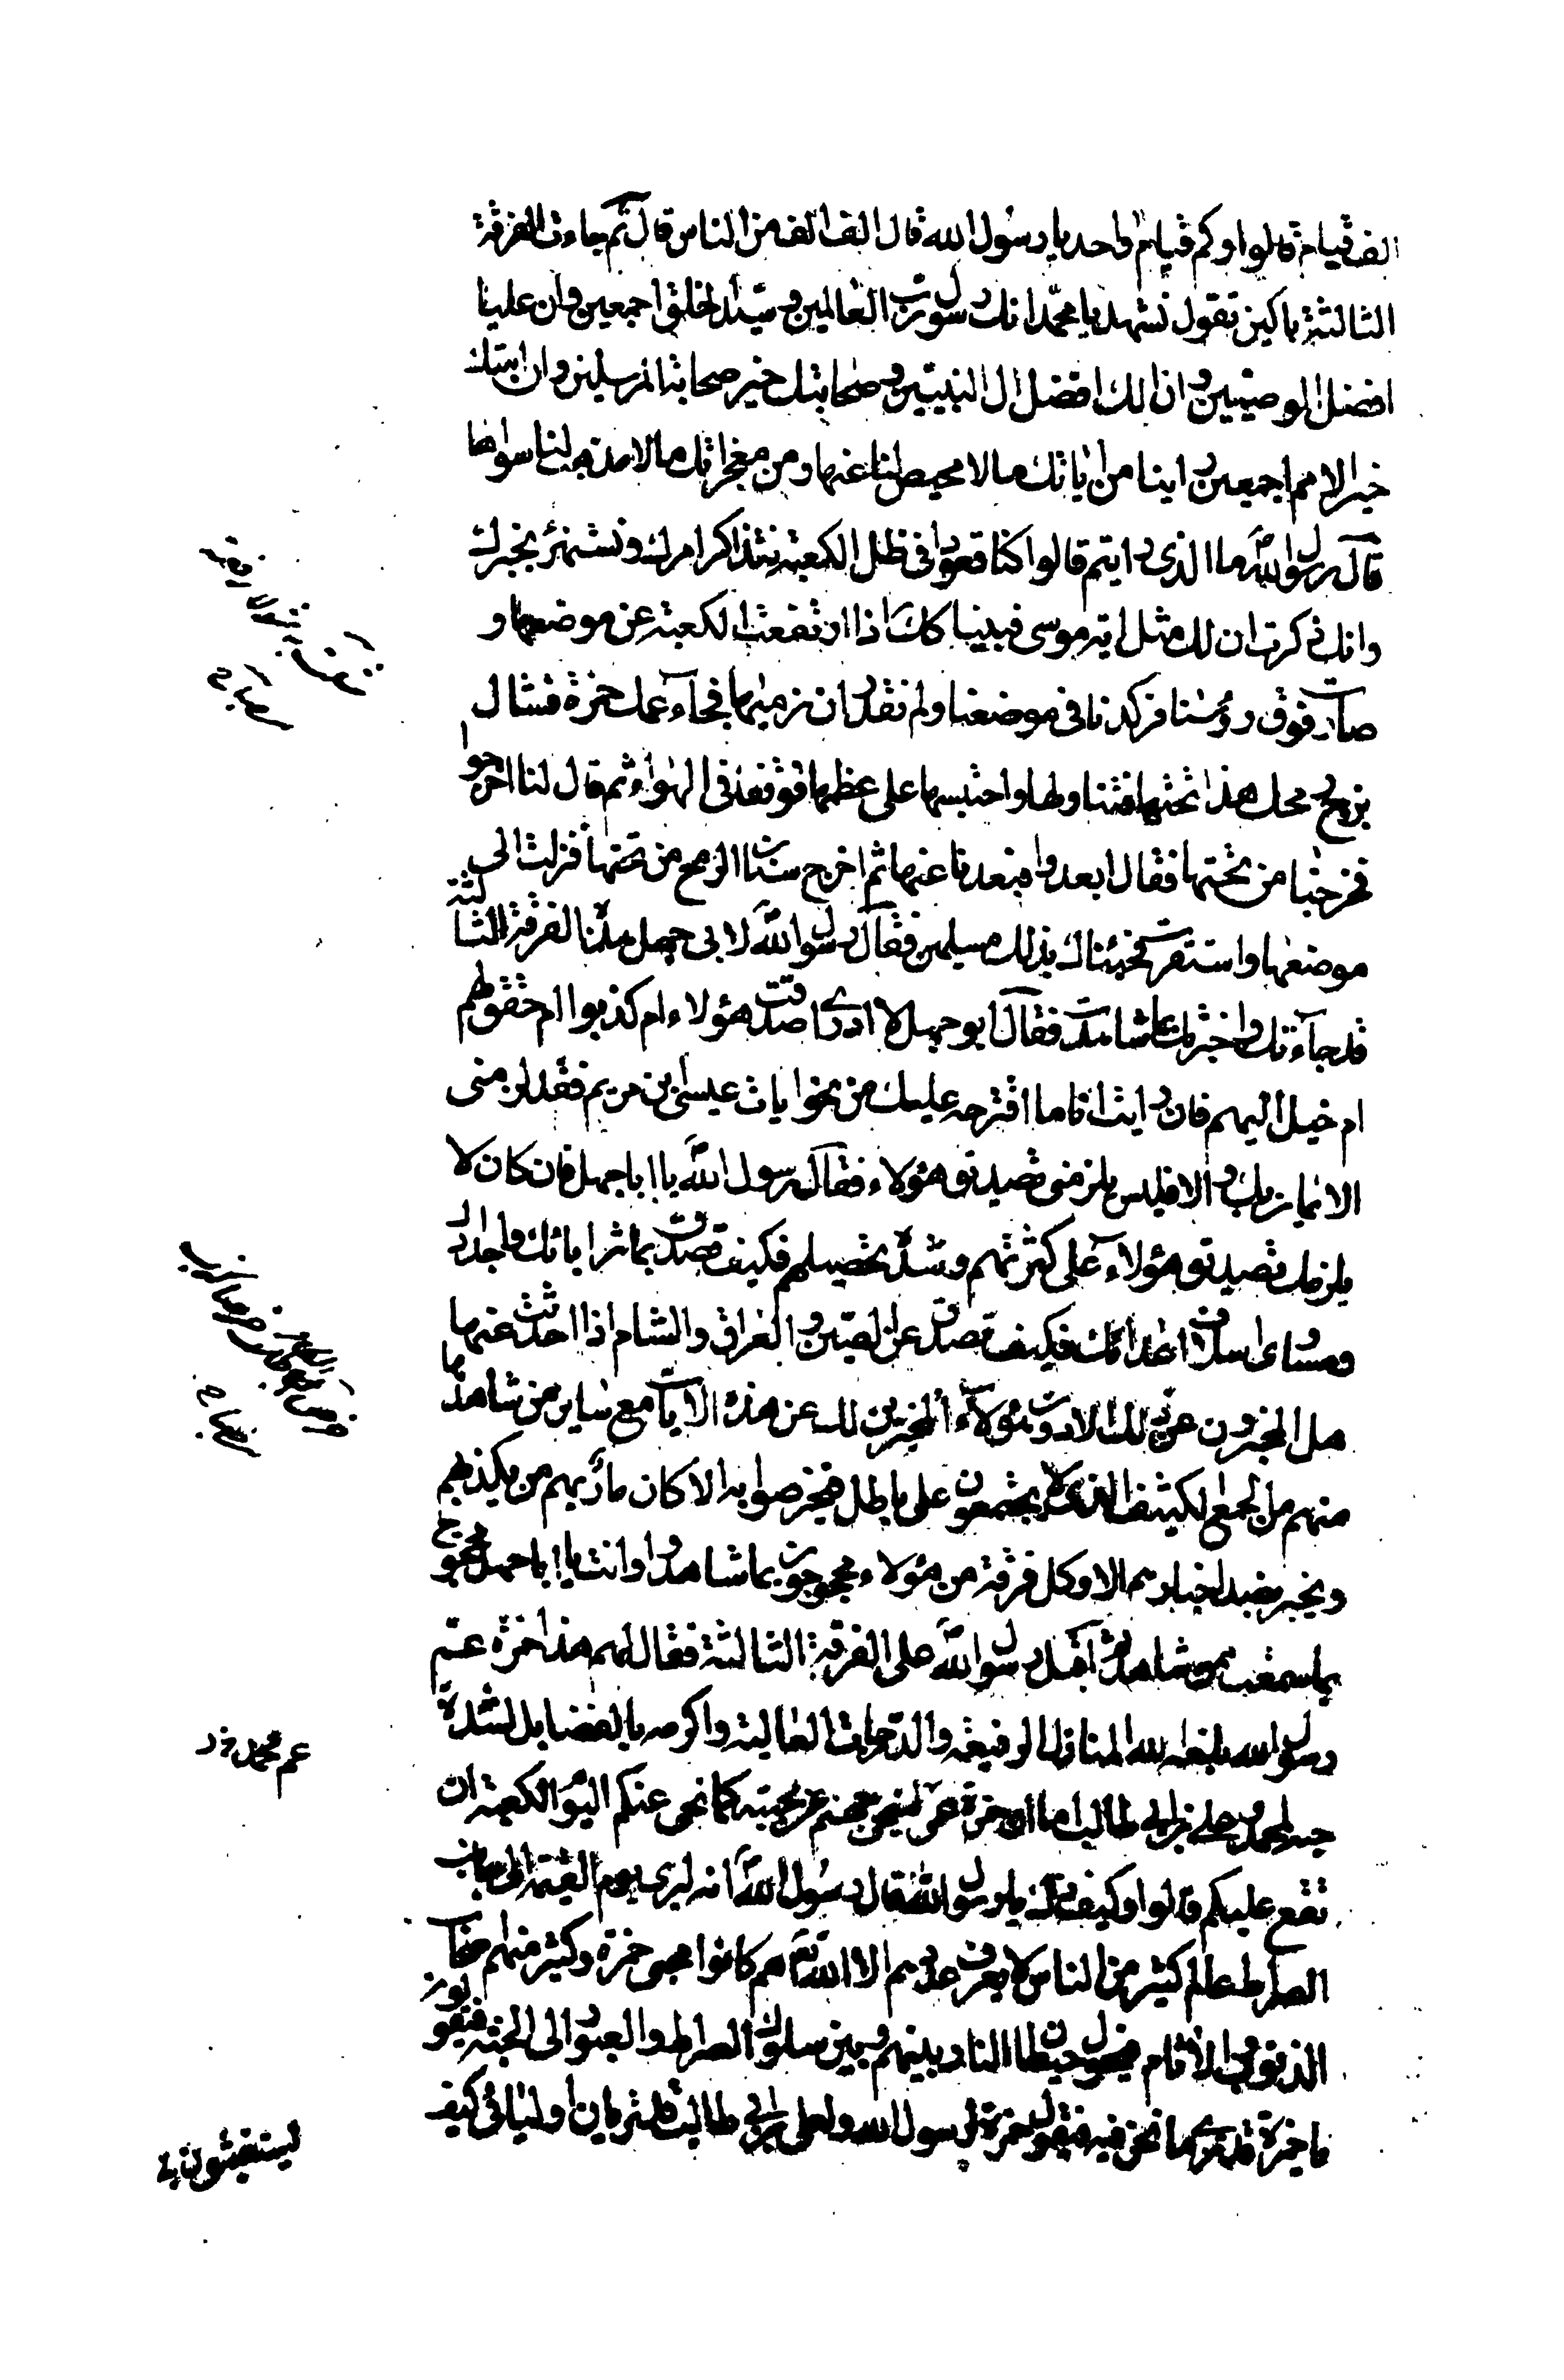 الف فيام قالوا وكم فيام واحد يا رسول الله قال الف الف من الناس قال ثم جاءت الفرقة
الثالثة باكين تقول نشهد يا محمد انك رسول رب العالمين وسيد الخلق اجمعين وان عليا
افضل الوصيين وان الك افضل ال النبيين وصحابتك خير صحابة المرسلين وان امتك
خير الامم اجمعين راينا من اياتك ما لا محيص لنا عنها ومن معجزاتك ما لا مذهب لنا سواها
قال رسول الله ما الذى رايتم قالوا كنا قعودا فى ظل الكعبة نتذاكر امرك ونستهزئ بخبرك
وانك ذكرت ان لك مثل اية موسى فبينا كك اذا ارتفعت الكعبة عن موضعها و
صارت فوق رؤسنا فركدنا فى موضعنا ولم نقدر ان نرميها فجاء عمك حمزة فتناول
بزج رمحه هكذا تحتها فتناولها واحتبسها على عظمها فوقفت فى الهواء ثم قال لنا اخرجوا
فخرجنا من تحتها فقال ابعدوا فبعدنا عنها ثم اخرج سنان الرمح من تحتها فنزلت الى
موضعها واستقرت فجئناك بذلك مسلمين فقال رسول الله لابى جهل هذه الفرقة الثالثة
قد جاءتك واخبرتك بما شاهدت فقال ابو جهل لا ادرى اصدق هؤلاء ام كذبوا ام حقق لهم
ام خيل اليهم فان رايت انا ما اقترحه عليك من نحو ايات عيسى بن مريم فقد لزمنى
الايمان بك والا فليس يلزمنى تصديق هؤلاء فقال رسول الله يا ابا جهل فان كان لا
يلزمك تصديق هؤلاء على كثرتهم وشدة تحصيلهم فكيف تصدق بماثر ابائك واجدادك
ومساوى اسلاف اعدائك فكيف تصدق عن الصين والعراق والشام اذا حدثت عنها
هل المخبرون عن ذلك الا دون هؤلاء المخبرين لك عن هذه الايات مع ساير من شاهدها
منهم من الجمع الكثيف الذين لا يجتمعون على باطل فيخرصوا به الا كان بازائهم من يكذبهم
ويخبر بضد اخبارهم الا وكل فرقة من هؤلاء محجوجون بما شاهدوا وانت يا ابا جهل محجوج
بما سمعت ممن شاهد ثم اقبل رسول الله على الفرقة الثالثة فقال لهم هذا حمزة عم
رسول الله بلغه الله المنازل الرفيعة والدرجات العالية واكرمه بالفضايل لشدة
حبه لمحمد وعلى بن ابى طالب اما ان حمزة عم محمد لينحى جهنم عن محبيه كما نحى عنكم اليوم الكعبة ان
تقع عليكم قالوا وكيف ذلك يا رسول الله قال رسول الله انه ليرى يوم القيمة الى جانب
الصراط عالم كثير من الناس لا يعرف عددهم الا الله تعالى هم كانوا محبى حمزة وكثير منهم اصحاب
الذنوب والاثام فيحول حيطان النار بينهم وبين سلوك الصراط والعبور الى الجنة فيقولون
يا حمزة قد ترى ما نحن فيه فيقول حمزة لرسول الله ولعلى بن ابى طالب قد تريان اوليائى كيف
عم محمد
يستغيثون بى